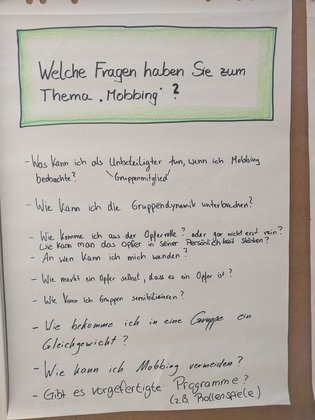 Welche Fragen haben Sie zum
Thema "Mobbing"?
- Was kann ich als Unbeteiligter tun, wenn ich Mobbing
beobachte? \Gruppenmitglied/
- Wie kann ich die Gruppendynamik unterbrechen?
- Wie komme ich aus der Opferrolle? oder gar nicht erst rein?
Wie kann man das Opfer in seiner Persönlichkeit stärken?
- An wen kann ich mich wenden?
- Wie merkt ein Opfer selbst, dass es ein Opfer ist?
- Wie kann ich Gruppen sensibilisieren?
- Wie bekomme ich in eine Gruppe ein
Gleichgewicht?
- Wie kann ich Mobbing vermeiden?
- Gibt es vorgefertigte Programme?
(z.B. Rollenspiele)